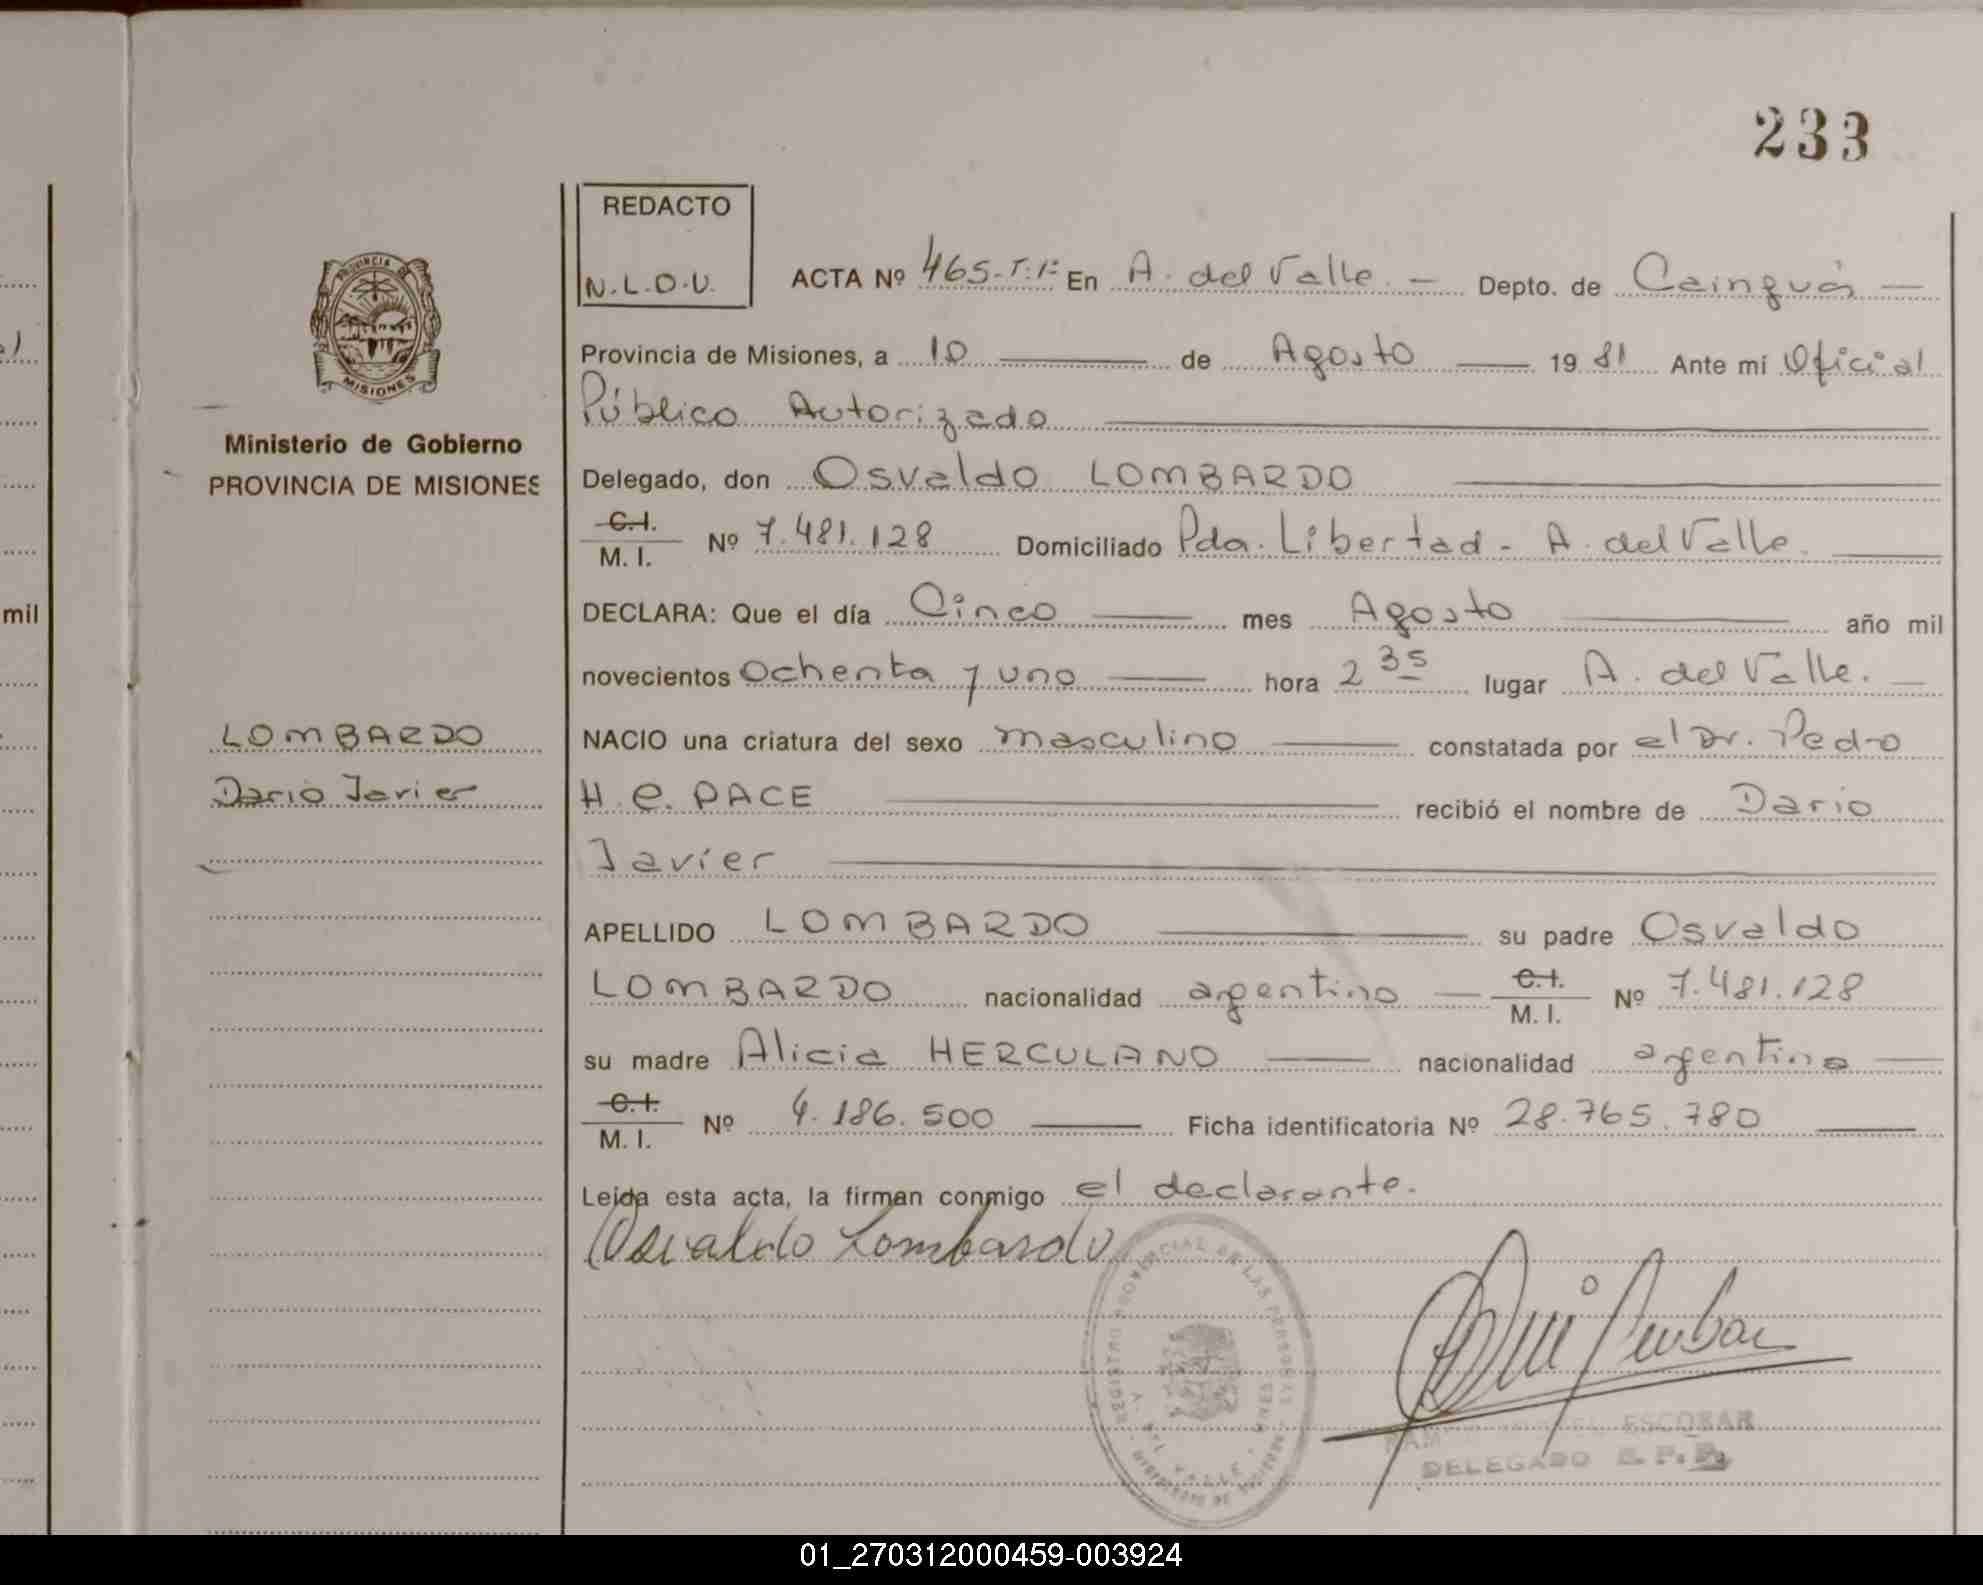 233
REDACTO
N.L.O.V.
PROVINCIA DE
MISIONES
Ministerio de Gobierno
PROVINCIA DE MISIONES
LOMBARDO
Dario Javier
mil
ACTA Nº 465-T:1º En A. del Valle. — Depto. de Cainguás —
Provincia de Misiones, a 10 de Agosto 1981 Ante mí Oficial
Público Autorizado
Delegado, don Osvaldo LOMBARDO
C.I. M. I. Nº 7.481.128 Domiciliado Pda. Libertad - A. del Valle.
DECLARA: Que el día Cinco mes Agosto año mil
novecientos Ochenta y uno hora 2 35 lugar A. del Valle. —
NACIO una criatura del sexo masculino constatada por el Dr. Pedro
H. C. PACE recibió el nombre de Dario
Javier
APELLIDO LOMBARDO su padre Osvaldo
LOMBARDO nacionalidad argentino — C.I. M. I. Nº 7.481.128
su madre Alicia HERCULANO nacionalidad argentina
C.I. M. I. Nº 4.186.500 Ficha identificatoria Nº 28.765.780
Leída esta acta, la firman conmigo el declarante.
Osvaldo Lombardo
REGISTRO PROVINCIAL DE LAS PERSONAS
A. DEL VALLE
ESCOBAR
DELEGADO
01_270312000459-003924